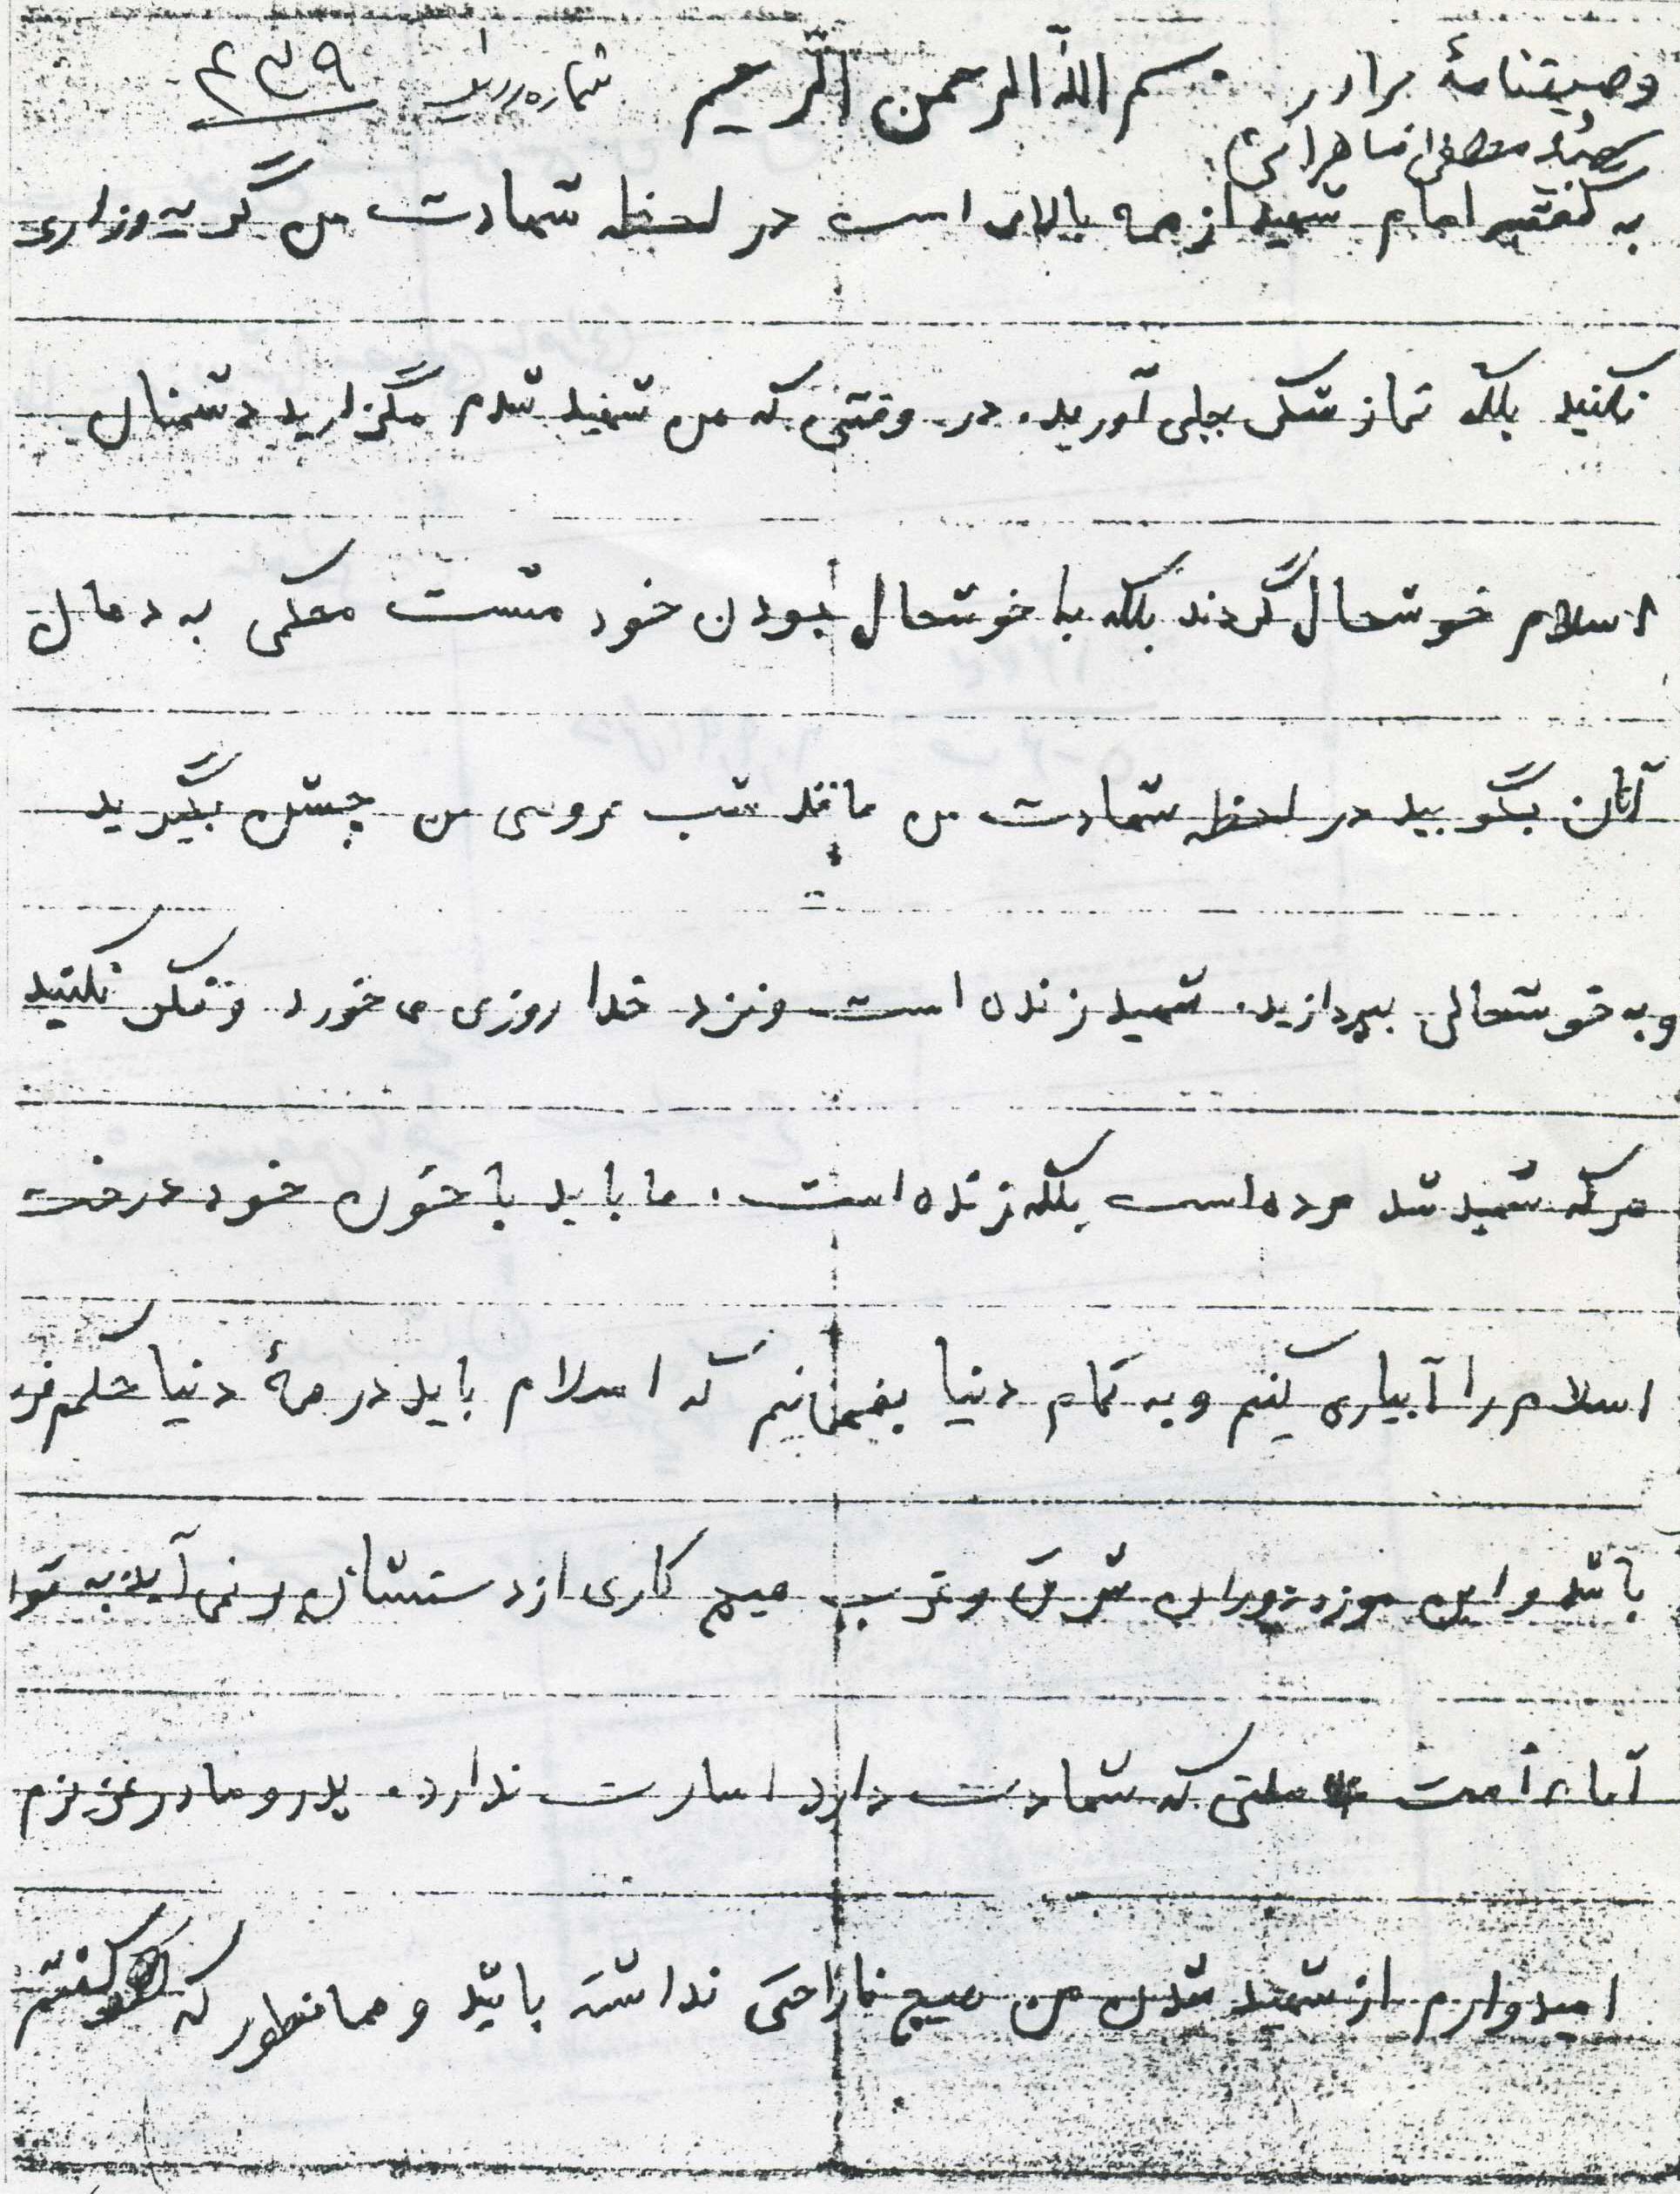 وصیتنامهٔ برادر بسم الله الرحمن الرحیم شماره ۴۳۹
شهید مصطفی
به گفتهٔ امام شهید از همه بالاتر است در لحظه شهادت من گریه وزاری
نکنید بلکه نماز شکر بجلی آورید. در وقتی که من شهید شدم مگزارید دشمنان
اسلام خوشحال گردند بلکه با خوشحال بودن خود مشت محکمی به دهان
آنان بگوبید در لحظه شهادت من مانند شب عروسی من چشن بگیرید
وبه خوشحالی بپردازید. شهید زنده است ونزد خدا روزی می خورد وفکر نکنید
هرکه شهید شد مرده است بلکه زنده است. ما باید با خون خود درخت
اسلام را آبیاری کنیم وبه تمام دنیا بفهمانیم که اسلام باید در همهٔ دنیا حکم فر
باشد و این شرق وغرب هیچ کاری از دستشان بر نمی آید به قول
امام امت ملتی که شهادت دارد اسارت ندارد. پدر و مادر عزیزم
امیدوارم از شهید شدن من هیچ ناراحتی نداشته باشید و همانطور که گفتم